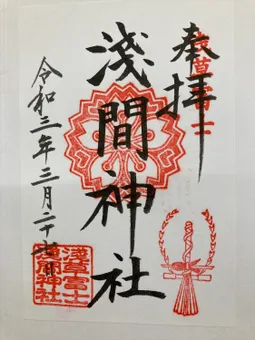 奉拝
浅草富士
淺間神社
令和三年三月二十七日
淺草富士
淺間神社